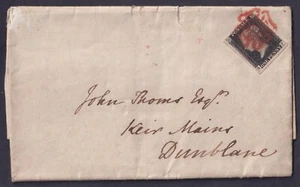 John Thoms Esqr.
Keir Mains
Dunblane